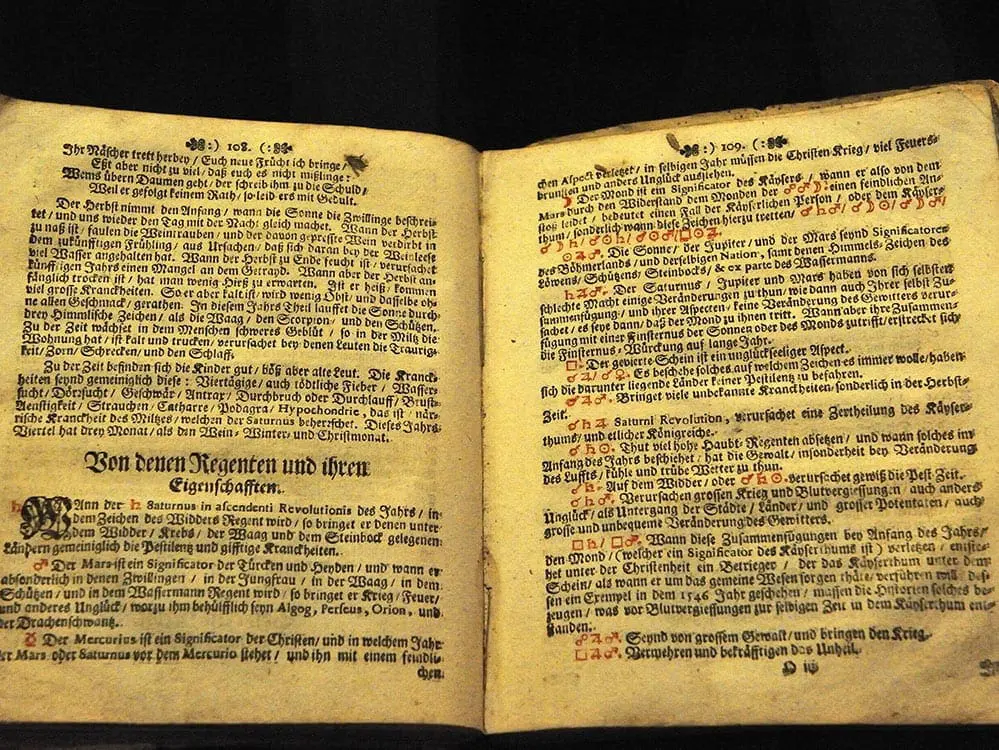 :) 108. (:
Ihr Näscher trett herbey / Euch neue Frücht ich bringe /
Eßt aber nicht zu viel / daß euch es nicht mißlinge:
Wems übern Daumen geht / der schreib ihm zu die Schuld /
Weil er gefolgt keinem Rath / so leid ers mit Gedult.
Der Herbst nimmt den Anfang / wann die Sonne die Zwillinge beschrei-
tet / und uns wieder den Tag mit der Nacht gleich machet. Wann der Herbst
zu naß ist / faulen die Weintrauben / und der davon gepreßte Wein verdirbt in
dem zukünfftigen Frühling / aus Ursachen / daß sich daran bey der Weinlese
viel Wasser angehalten hat. Wann der Herbst zu Ende feucht ist / verursachet
künfftigen Jahrs einen Mangel an dem Getrayd. Wann aber der Herbst an-
fänglich trocken ist / hat man wenig Hirß zu erwarten. Ist er heiß / kommen
viel grosse Kranckheiten. So er aber kalt ist / wird wenig Obst / und dasselbe oh-
ne allen Geschmack / gerathen. In diesen Jahrs Theil lauffet die Sonne durch
drey Himmlische Zeichen / als die Waag / den Scorpion / und den Schützen.
Zu der Zeit wächset in dem Menschen schweres Geblüt / so in der Miltz die
Wohnung hat / ist kalt und trucken / verursachet bey denen Leuten die Traurig-
keit / Zorn / Schrecken / und den Schlaff.
Zu der Zeit befinden sich die Kinder gut / böß aber alte Leut. Die Kranck-
heiten seynd gemeiniglich diese: Viertägige / auch tödtliche Fieber / Wasser-
sucht / Dörrsucht / Geschwär / Antrax / Durchbruch oder Durchlauff / Brust-
Aenstigkeit / Strauchen / Catharre / Podagra / Hypochondrie, das ist / när-
rische Kranckheit des Miltzes / welchen der Saturnus beherrschet. Dieses Jahrs-
Viertel hat drey Monat / als den Wein- Winter- und Christmonat.
Von denen Regenten und ihren
Eigenschafften.
♄ WAnn der ♄ Saturnus in ascendenti Revolutionis des Jahrs / in
dem Zeichen des Widders Regent wird / so bringet er denen unter
dem Widder / Krebs / der Waag und dem Steinbock gelegenen
Ländern gemeiniglich die Pestilentz und gifftige Kranckheiten.
♂ Der Mars ist ein Significator der Türcken und Heyden / und wann er
absonderlich in denen Zwillingen / in der Jungfrau / in der Waag / in dem
Schützen / und in dem Wassermann Regent wird / so bringet er Krieg / Feuer /
und anderes Unglück / worzu ihm behülfflich seyn Algog, Perseus, Orion, und
der Drachenschwantz.
☿ Der Mercurius ist ein Significator der Christen / und in welchem Jahr
der Mars oder Saturnus vor dem Mercurio stehet / und ihn mit einem feindli-
chen
:) 109. (:
chen Aspect verletzet / in selbigen Jahr müssen die Christen Krieg / viel Feuers-
brunsten und anders Unglück ausstehen.
☽ Der Mond ist ein Significator des Käysers / wann er also von dem
Mars durch den Widerstand dem Monden der ☍ ♂ ☽: einen feindlichen An-
stoß leidet / bedeutet einen Fall der Käyserlichen Person / oder dem Käyser-
thum / sonderlich wann diese Zeichen hierzu tretten /
☉ ♃ ♂. Die Sonne / der Jupiter / und der Mars seynd Significatores
des Böhmerlands / und derselbigen Nation, samt dynen Himmels-Zeichen des
Löwens / Schützens / Steinbocks / & ex parte des Wassermanns.
♄ ♃ ♂. Der Saturnus / Jupiter und Mars haben von sich selbsten
schlechte Macht einige Veränderungen zu thun / wie dann auch ihrer selbst Zu-
sammenfügung / und ihrer Aspecten / keine Veränderung des Gewitters verur-
sachet / es seye dann / daß der Mond zu ihnen tritt. Wann aber ihre Zusammen-
fügung mit einer Finsternus der Sonnen oder des Monds zutrifft / erstrecket sich
die Finsternus / Würckung auf lange Jahr.
□. Der gevierte Schein ist ein unglückseeliger Aspect.
♂ ♃ / ♂ ♀. Es beschehe solches auf welchem Zeichen es immer wolle / haben
sich die darunter liegende Länder keiner Pestilentz zu befahren.
♂ ♃ ♂. Bringet viele unbekannte Kranckheiten / sonderlich in der Herbst-
Zeit.
☌ ♄ ♃ Saturni Revolution, verursachet eine Zertheilung des Käyser-
thums / und etlicher Königreiche.
☌ ♄ ☉. Thut viel hohe Haubt-Regenten absetzen / und wann solches im
Anfang des Jahrs beschiehet / hat die Gewalt / insonderheit bey Veränderung
des Luffts / kühle und trübe Wetter zu thun.
☌ ♄. Auf dem Widder / oder ☌ ♄ ☉. verursachet gewiß die Pest-Zeit.
☌ ♄ ♂. Verursachen grossen Krieg und Blutvergiessungen / auch anders
Unglück / als Untergang der Städte / Länder / und grosser Potentaten / auch
grosse und unbequeme Veränderung des Gewitters.
□ ♄ / □ ♂. Wann diese Zusammenfügungen bey Anfang des Jahrs /
den Mond / (welcher ein Significator des Käyserthums ist) verletzen / entste-
het unter der Christenheit ein Betrieger / der das Käyserthum unter dem
Schein / als wann er um das gemeine Wesen sorgen thäte / verführen will / des-
sen ein Exempel in dem 1546 Jahr geschehen / massen die Historien solches be-
zeugen / was vor Blutvergiessung zur selbigen Zeit in dem Käyserthum ent-
standen.
☍ ♃ ♂. Seynd von grossem Gewalt / und bringen den Krieg.
□ ♃ ♂. Verwehren und bekräfftigen das Unheil.